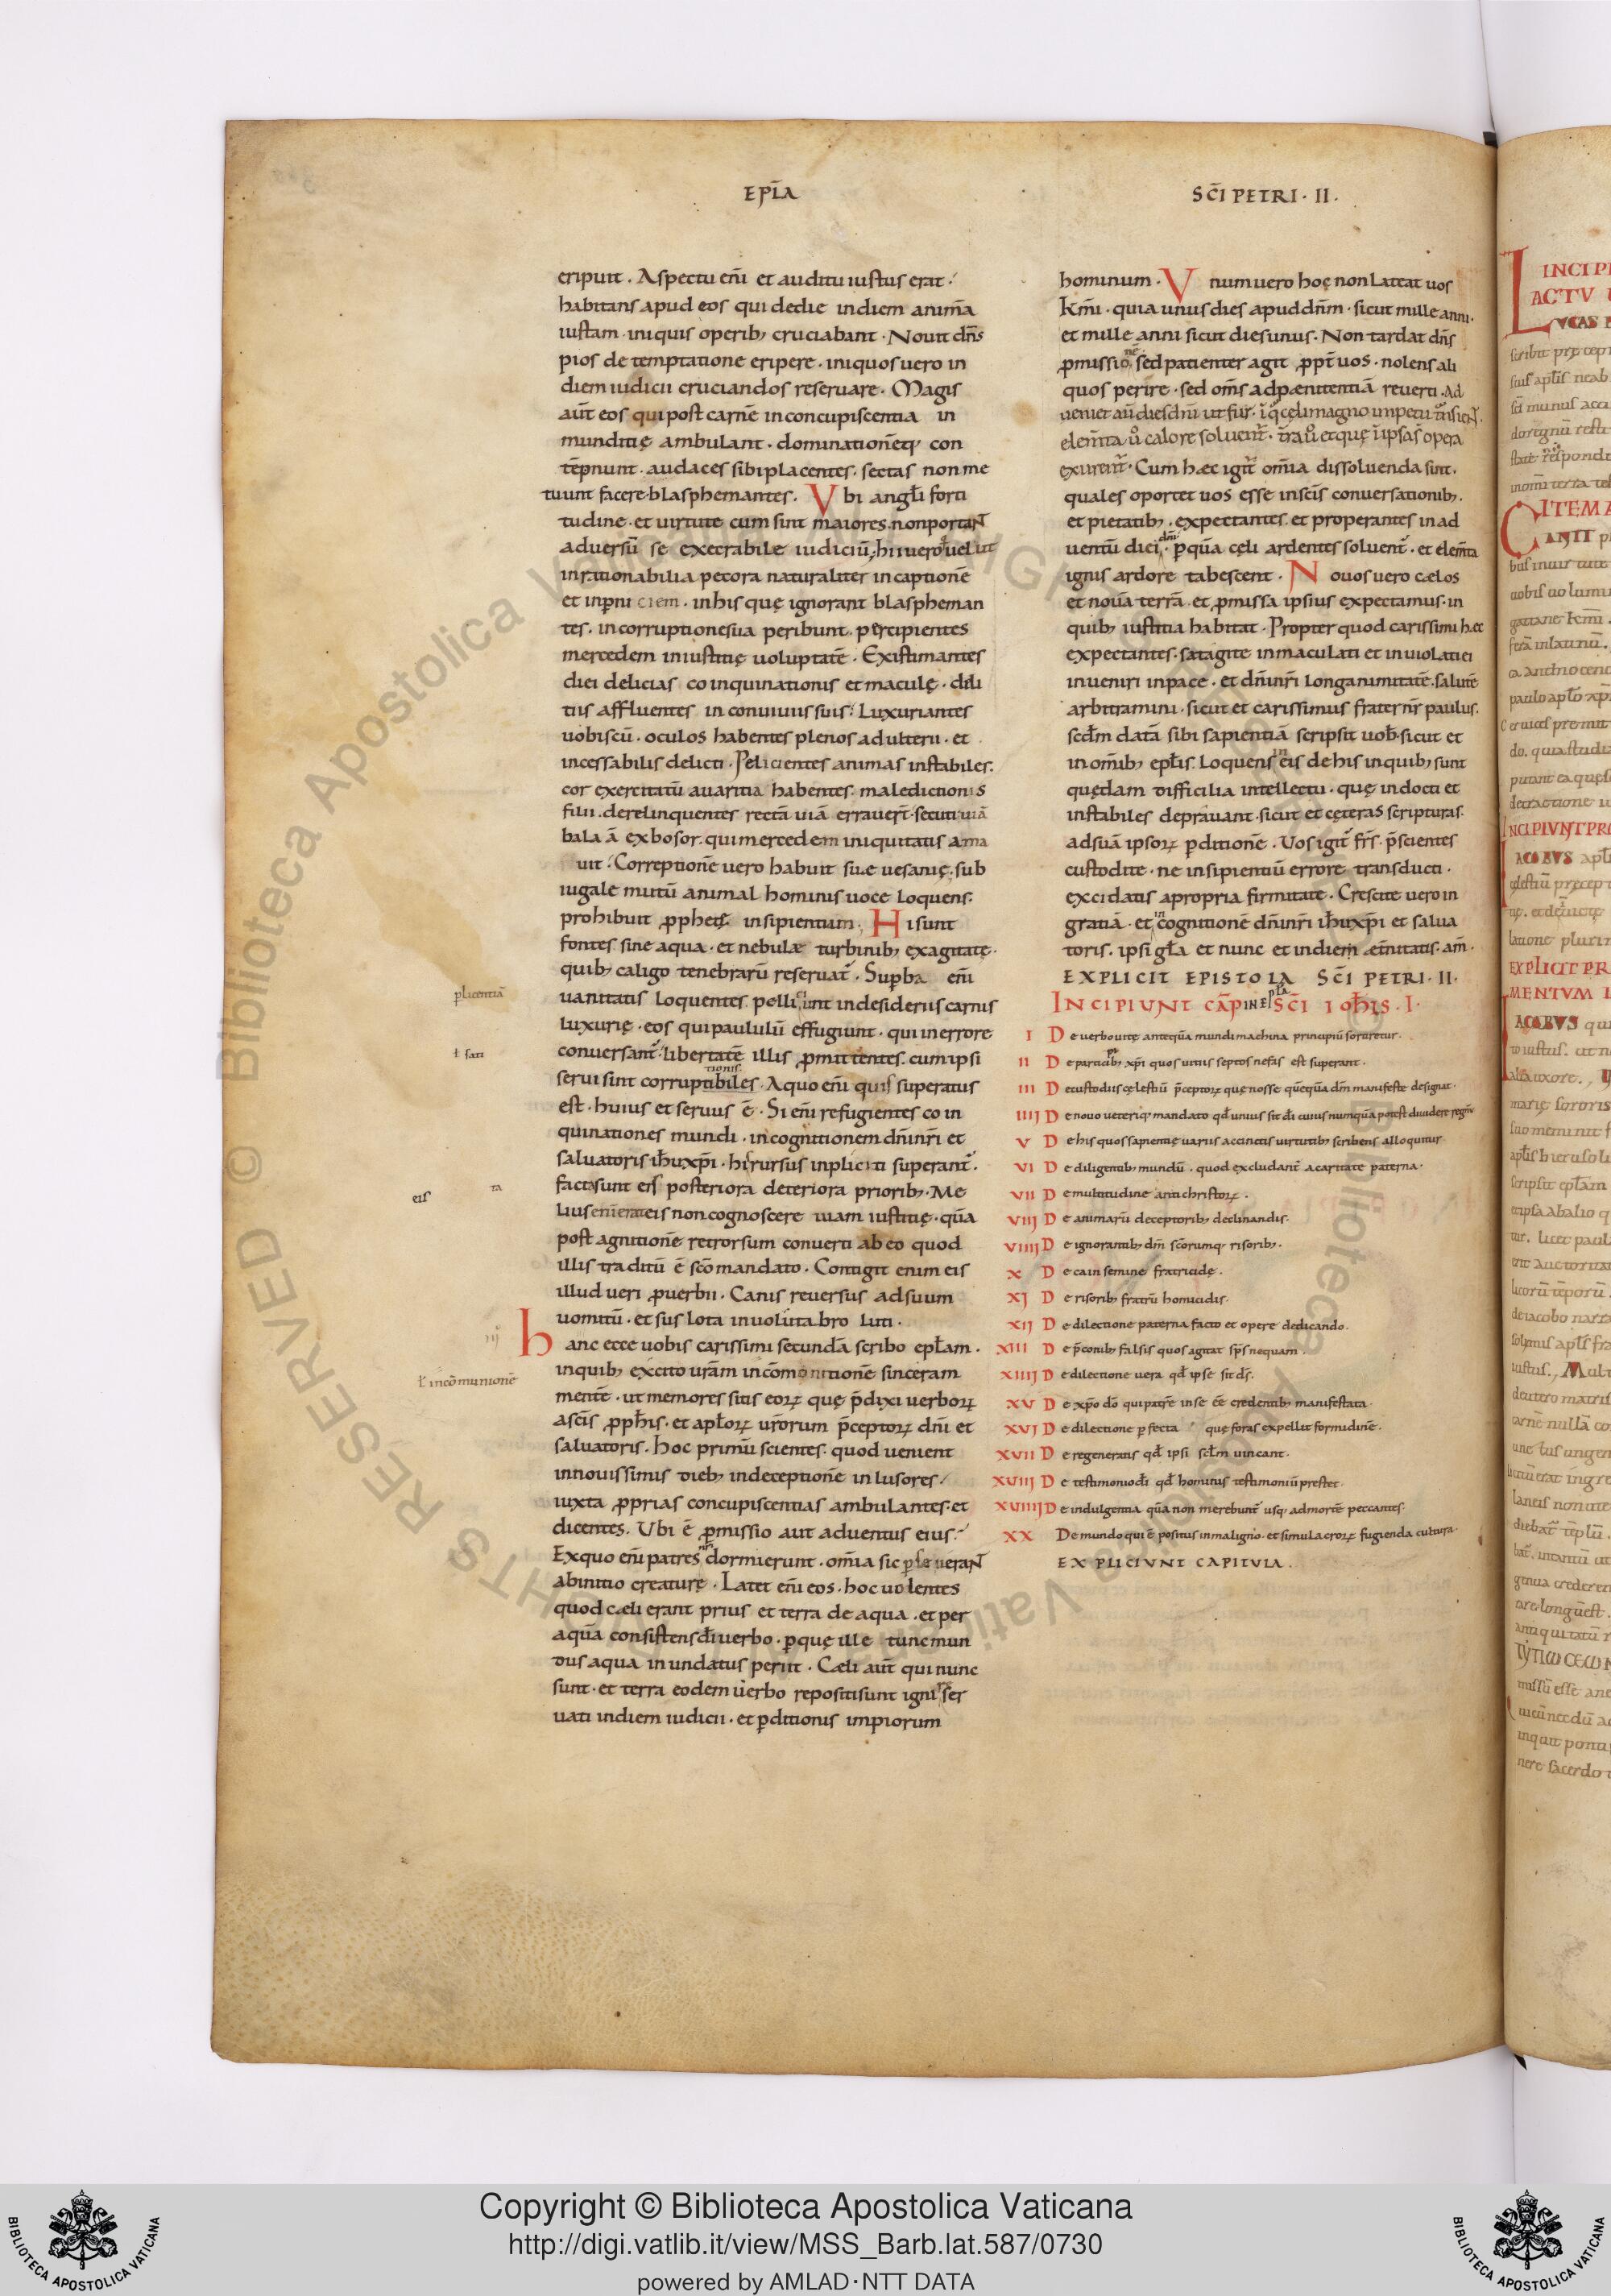 EPĪA
SC̄I PETRI · II ·
eripuit · Aspectu eni̅ et auditu iustus erat ·
habitans apud eos qui dedie indiem anima̅
iustam · iniquis operib; cruciabant · Nouit dn̅s
pios de temptatione eripere · iniquos uero in
diem iudicii cruciandos reseruare · Magis
aut̅ eos qui post carne̅ inconcupiscentia in
munditię ambulant · dominatione̅q; con
te̅pnunt · audaces sibiplacentes · sectas non me
tuunt facere · blasphemantes · Vbi angl̅i forti
tudine · et uirtute cum sint maiores · nonportaNT
adversu̅ se execrabile iudiciu̅; hiiuero uelut
inrationabilia pecora naturaliter incaptione̅
et inp̲niciem · inhis quę ignorant blaspheman
tes · incorruptionesua peribunt · percipientes
mercedem iniustitię uoluptate̅ · Existimantes
diei delicias coinquinationis et maculę · dili
tiis affluentes inconuiuiis suis · Luxuriantes
uobiscu̅ · oculos habentes plenos adulterii · et
incessabilis delicti · Pelicientes animas instabiles ·
cor exercitatu̅ auaritia habentes · maledictionis
filii · derelinquentes recta̅ uia̅ erraver̅t · secuti uia̅
balaā exbosor · quimercedem iniquitatis ama
uit · Correptione̅ uero habuit suæ uesanię · sub
iugale mutu̅ animal hominis uoce loquens ·
prohibuit p̲phetę insipientium · Hi sunt
fontes sine aqua · et nebulæ turbinib; exagitatę ·
quib; caligo tenebraru̅ reseruat̅ · Sup̲ba eni̅
uanitatis loquentes · pelliciunt indesideriis carnis
plicentiā
luxurię · eos quipaululu̅ effugiunt · qui inerrore
conversant̅ · libertate̅ illis p̲mittentes · cumipsi
ł sati
serui sint corruptibiles · Aquo eni̅ quis superatus
tionis
est · huius et seruus ē · Si eni̅ refugientes coin
quinationes mundi · incognitionem dn̅inr̅i et
saluatoris ih̅uxp̅i · hisrursus inpliciti superant̅ ·
factasunt eis posteriora deteriora priorib; · Me
eis
ta
lius enieraeis noncognoscere uiam iustitię · qu̅a
post agnitione̅ retrorsum converti ab eo quod
illis traditu̅ ē sc̅o mandato · Contigit enim eis
illud ueri p̲uerbii · Canis reversus adsuum
uomitu̅ · et sus lota inuolutabro luti ·
Hanc ecce uobis carissimi secunda̅ scribo epl̅am ·
iij
inquib; excito ur̅am inco̅monitione̅ sinceram
ł inco̅munione̅
mente̅ · ut memores sitis eorꝝ quę p̅dixi uerborꝝ
asc̅is p̲ph̅is · et apl̅orꝝ ur̅orum p̅ceptorꝝ dn̅i et
saluatoris · hoc primu̅ scientes · quod uenient
innouissimis dieb; indeceptione̅ inlusores ·
iuxta p̲prias concupiscentias ambulantes · et
dicentes · Ubi ē p̲missio aut aduentus eius ·
Exquo eni̅ patres nr̅i dormierunt · om̅ia sic p̲seueraNT
abinitio creaturę · Latet eni̅ eos · hoc uolentes
quod cæli erant prius et terra de aqua · et per
aqua̅ consistens d̅iuerbo · p̲quę ille tuncmun
dus aqua inundatus periit · Cæli aut̅ qui nunc
sunt · et terra eodem uerbo repositisunt igni ser
uati indiem iudicii · et p̲ditionis impiorum
hominum · Vnumuero hoc nonlateat uos
Km̅i · quia unusdies apuddn̅m · sicut mille anni ·
et mille anni sicut diesunus · Non tardat dn̅s
p̲missione̅ sedpatienter agit p̲pt̅ uos · nolens ali
quos perire · sed om̅s adpænitentia̅ reverti · Ad
ueniet au̅ diesdn̅i ut fur · i̅q̊ cęlimagno impetu tra̅nsient̅ ·
elem̅ta u̅ calore soluent̅ · t̅rau̅ etquę i̅ipsas̅ opera
exurent̅ · Cum hæc igit̅ om̅ia dissoluenda sint ·
quales oportet uos esse insc̅is conuersationib; ·
et pietatib; · expectantes · et properantes inad
uentu̅ diei dn̅i · p̲qu̅a cęli ardentes soluent̅ · et elem̅ta
ignis ardore tabescent · Nouos uero cælos
et noua̅ terra̅ · et p̲missa ipsius expectamus · in
quib; iustitia habitat · Propter quod carissimi hæc
expectantes · satagite inmaculati et inuiolatiei
inueniri inpace · et dn̅inr̅i longanimitate̅ · salute̅
arbitramini · sicut et carissimus frater nr̅ paulus ·
scd̅m data̅ sibi sapientia̅ scripsit uob̅ · sicut et
inom̅ib; epl̅is · loquens in eis dehis inquib; sunt
quędam difficilia intellectu · quę indocti et
instabiles depravant · sicut et cęteras scripturas ·
adsua̅ ipsorꝝ p̲ditione̅ · Uos igit̅ fr̅s · p̅scientes
custodite · ne insipientiu̅ errore transducti ·
excidatis apropria firmitate · Crescite uero in
gratia̅ · et in cognitione̅ dn̅inr̅i ih̅uxp̅i et salua
toris · ipsi gl̅a et nunc et indiem æt̅nitatis · am̅ ·
EXPLICIT EPISTOLA SC̄I PETRI · II ·
INCIPIUNT CAP̄ IN EPLA SC̄I IOH̄IS · I ·
I De verbo uitę antequa̅ mundi machina principiu̅ sortiretur ·
II De particib; xp̅i quos uitiis septos nefas est superant ·
III De custodiis cęlestiu̅ p̅ceptorꝝ quę nosse que̅qua̅ dm̅ manifeste designat ·
IIIJ De nouo veteriq; mandato qd̅ unius sit d̅i cuius numqua̅ potest diuidere regnu̅
V De his quos sapientię variis accinctis uirtutib; scribens alloquitur
VI De diligentib; mundu̅ · quod excludant̅ acaritate paterna ·
VII De multitudine antichristorꝝ ·
VIIJ De animaru̅ deceptorib; declinandis ·
VIIIJ De ignorantib; dm̅ sc̅orumq; risorib; ·
X De cain semine fratricidę ·
XJ De risorib; fratru̅ homicidis ·
XIJ De dilectione paterna facto et opere dedicando ·
XIII De p̅conib; falsis quos agitat sp̅s nequam ·
XIIIJ De dilectione uera qd̅ ipse sit d̅s ·
XV De xp̅o do̅ qui patre̅ in se e̅e credentib; manifestata ·
XVJ De dilectione p̲fecta quę foras expellit formidine̅ ·
XVIJ De regenerans qd̅ ipsi scl̅m uincant ·
XVIIJ De testimoniod̅i qd̅ hominis testimoniu̅ prestet ·
XVIIIJ De indulgentia qu̅a non merebunt̅ usq; admorte̅ peccantes ·
XX De mundo qui ē positus inmaligno · et simulacrorꝝ fugienda cultura ·
EXPLICIUNT CAPITULA ·
Copyright © Biblioteca Apostolica Vaticana
http://digi.vatlib.it/view/MSS_Barb.lat.587/0730
powered by AMLAD·NTT DATA